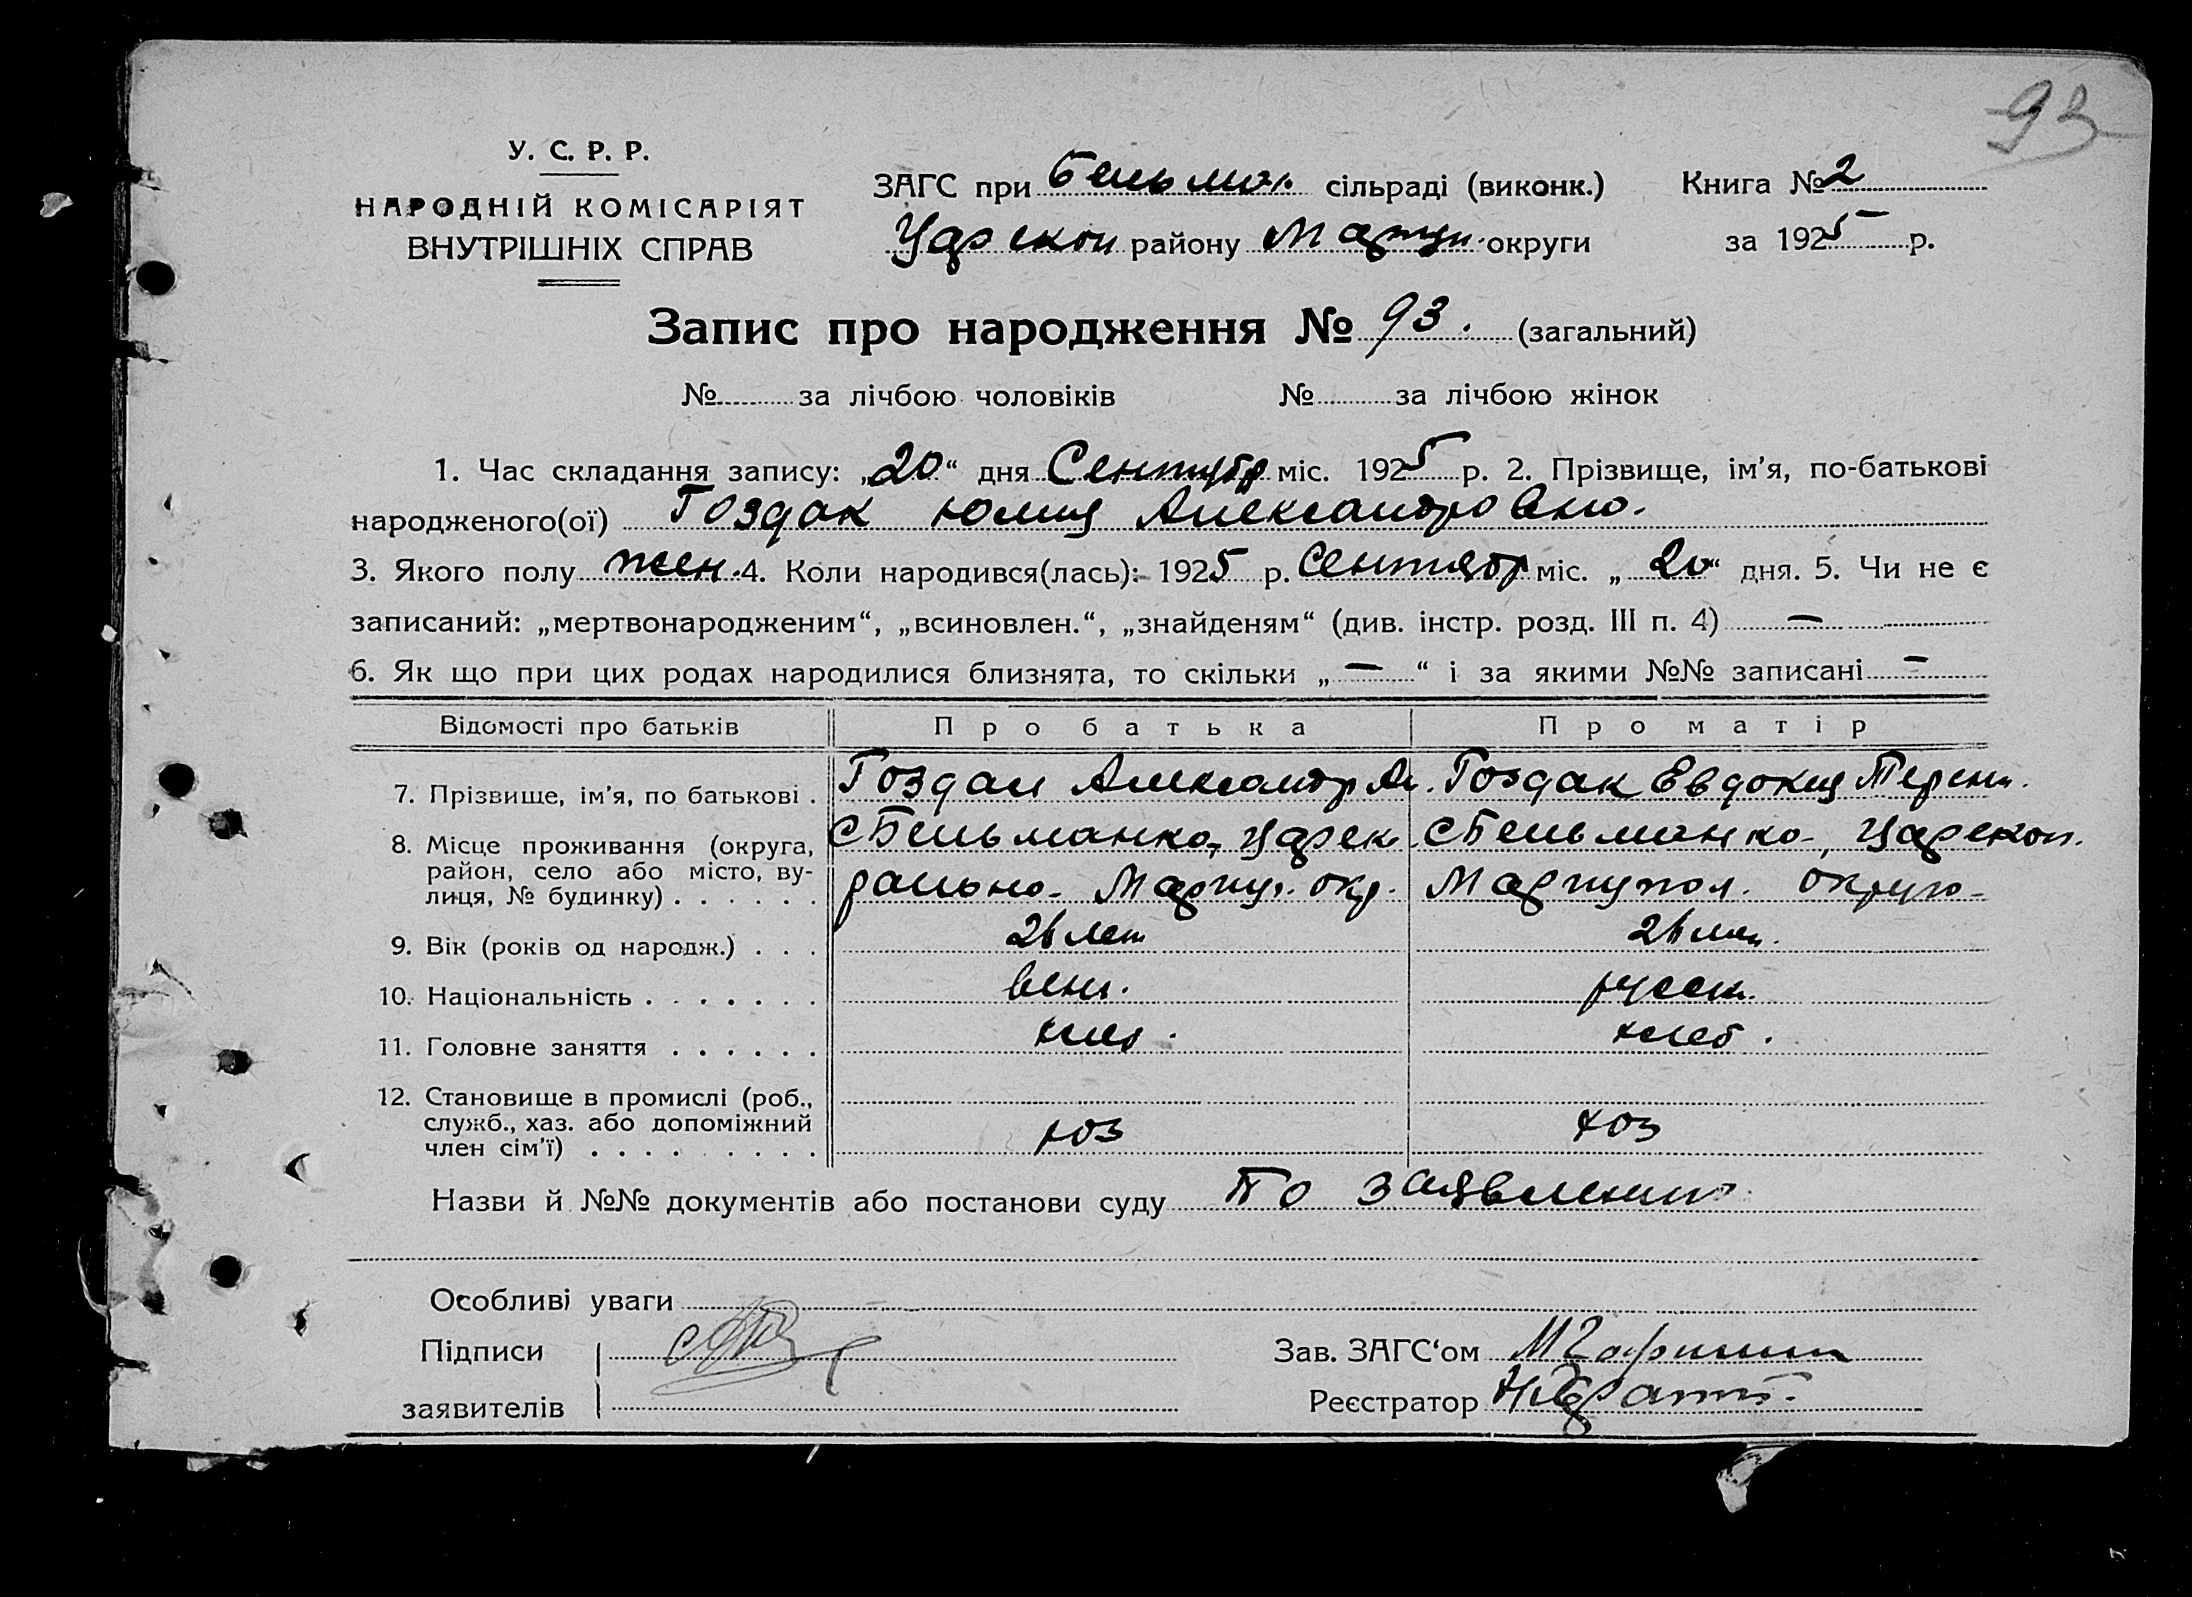 93
У. С. Р. Р.
НАРОДНІЙ КОМІСАРІЯТ
ВНУТРІШНІХ СПРАВ
ЗАГС при Бельман. сільраді (виконк.) Книга № 2
Царекон району Мариуп. округи за 1925 р.
Запис про народження № 93. (загальний)
№ за лічбою чоловіків № за лічбою жінок
1. Час складання запису: „20“ дня Сентябр міс. 1925 р. 2. Прізвище, ім'я, по-батькові
народженого(ої) Гоздак Юлия Александровно.
3. Якого полу жен. 4. Коли народився(лась): 1925 р. Сентябр міс. „20“ дня. 5. Чи не є
записаний: „мертвонародженим“, „всиновлен.“, „знайденям“ (див. інстр. розд. III п. 4) —
6. Як що при цих родах народилися близнята, то скільки „—“ і за якими №№ записані —
Відомості про батьків Про батька Про матір
7. Прізвище, ім'я, по батькові . Гоздак Александр Ал. Гоздак Евдокия Терен.
8. Місце проживання (округа, район, село або місто, вулиця, № будинку) . . . . . . с Бельманко, Царек
Мариуп. окр. с Бельманко-, Царекон.
Мариупол. округо-
9. Вік (років од народж.) . . . 26 лет 26 лет.
10. Національність . . . . . . . русск.
11. Головне заняття . . . . . . хлеб. хлеб.
12. Становище в промислі (роб., служб., хаз. або допоміжний член сім'ї) . . . . . . . . . хоз хоз
Назви й №№ документів або постанови суду По заявлению
Особливі уваги
Підписи
заявителів
Зав. ЗАГС‘ом
Реєстратор